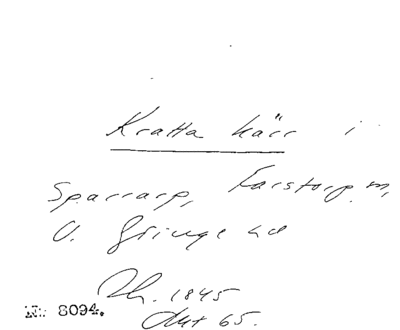 Kratta kärr i
Sparrarp, Farstorp m,
V. Göinge hd
1845
65.
No 8094.